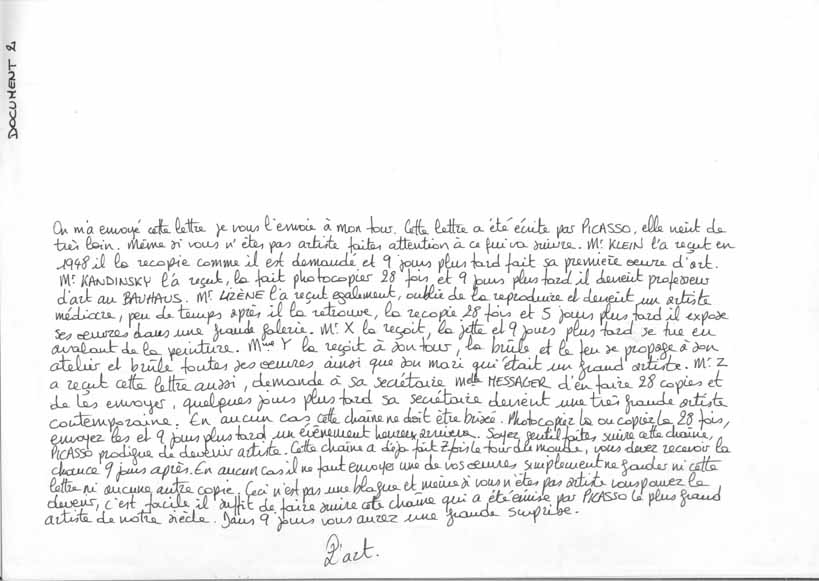 DOCUMENT 2
On m'a envoyé cette lettre je vous l'envoie à mon tour. Cette lettre a été écrite par PICASSO, elle vient de
très loin. Même si vous n'êtes pas artiste faites attention à ce qui va suivre. Mr KLEIN l'a reçut en
1948 il la recopie comme il est demandé et 9 jours plus tard fait sa première oeuvre d'art.
Mr KANDINSKY l'a reçut, la fait photocopier 28 fois et 9 jours plus tard il devient professeur
d'art au BAUHAUS. Mr LIZÈNE l'a reçut également, oublie de la reproduire et devient un artiste
médiocre, peu de temps après il la retrouve, la recopie 28 fois et 5 jours plus tard il expose
ses oeuvres dans une grande galerie. Mr X la reçoit, la jette et 9 jours plus tard se tue en
avalant de la peinture. Mme Y la reçoit à son tour, la brûle et le feu se propage à son
atelier et brûle toutes ses oeuvres ainsi que son mari qui était un grand artiste. Mr Z
a reçut cette lettre aussi, demande à sa secrétaire Melle MESSAGER d'en faire 28 copies et
de les envoyer, quelques jours plus tard sa secrétaire devient une très grande artiste
contemporaine. En aucun cas cette chaîne ne doit être brisée. Photocopiez la ou copiez la 28 fois,
envoyez les et 9 jours plus tard un évènement heureux arrivera. Soyez gentil faites suivre cette chaîne,
PICASSO prodigue de devenir artiste. Cette chaîne a déjà fait 7 fois le tour du monde, vous devez recevoir la
chance 9 jours après. En aucun cas il ne faut envoyer une de vos oeuvres simplement ne garder ni cette
lettre ni aucune autre copie. Ceci n'est pas une blague et même si vous n'êtes pas artiste vous pouvez le
devenir, c'est facile il suffit de faire suivre cette chaîne qui a été émise par PICASSO le plus grand
artiste de notre siècle. Dans 9 jours vous aurez une grande surprise.
L'art.